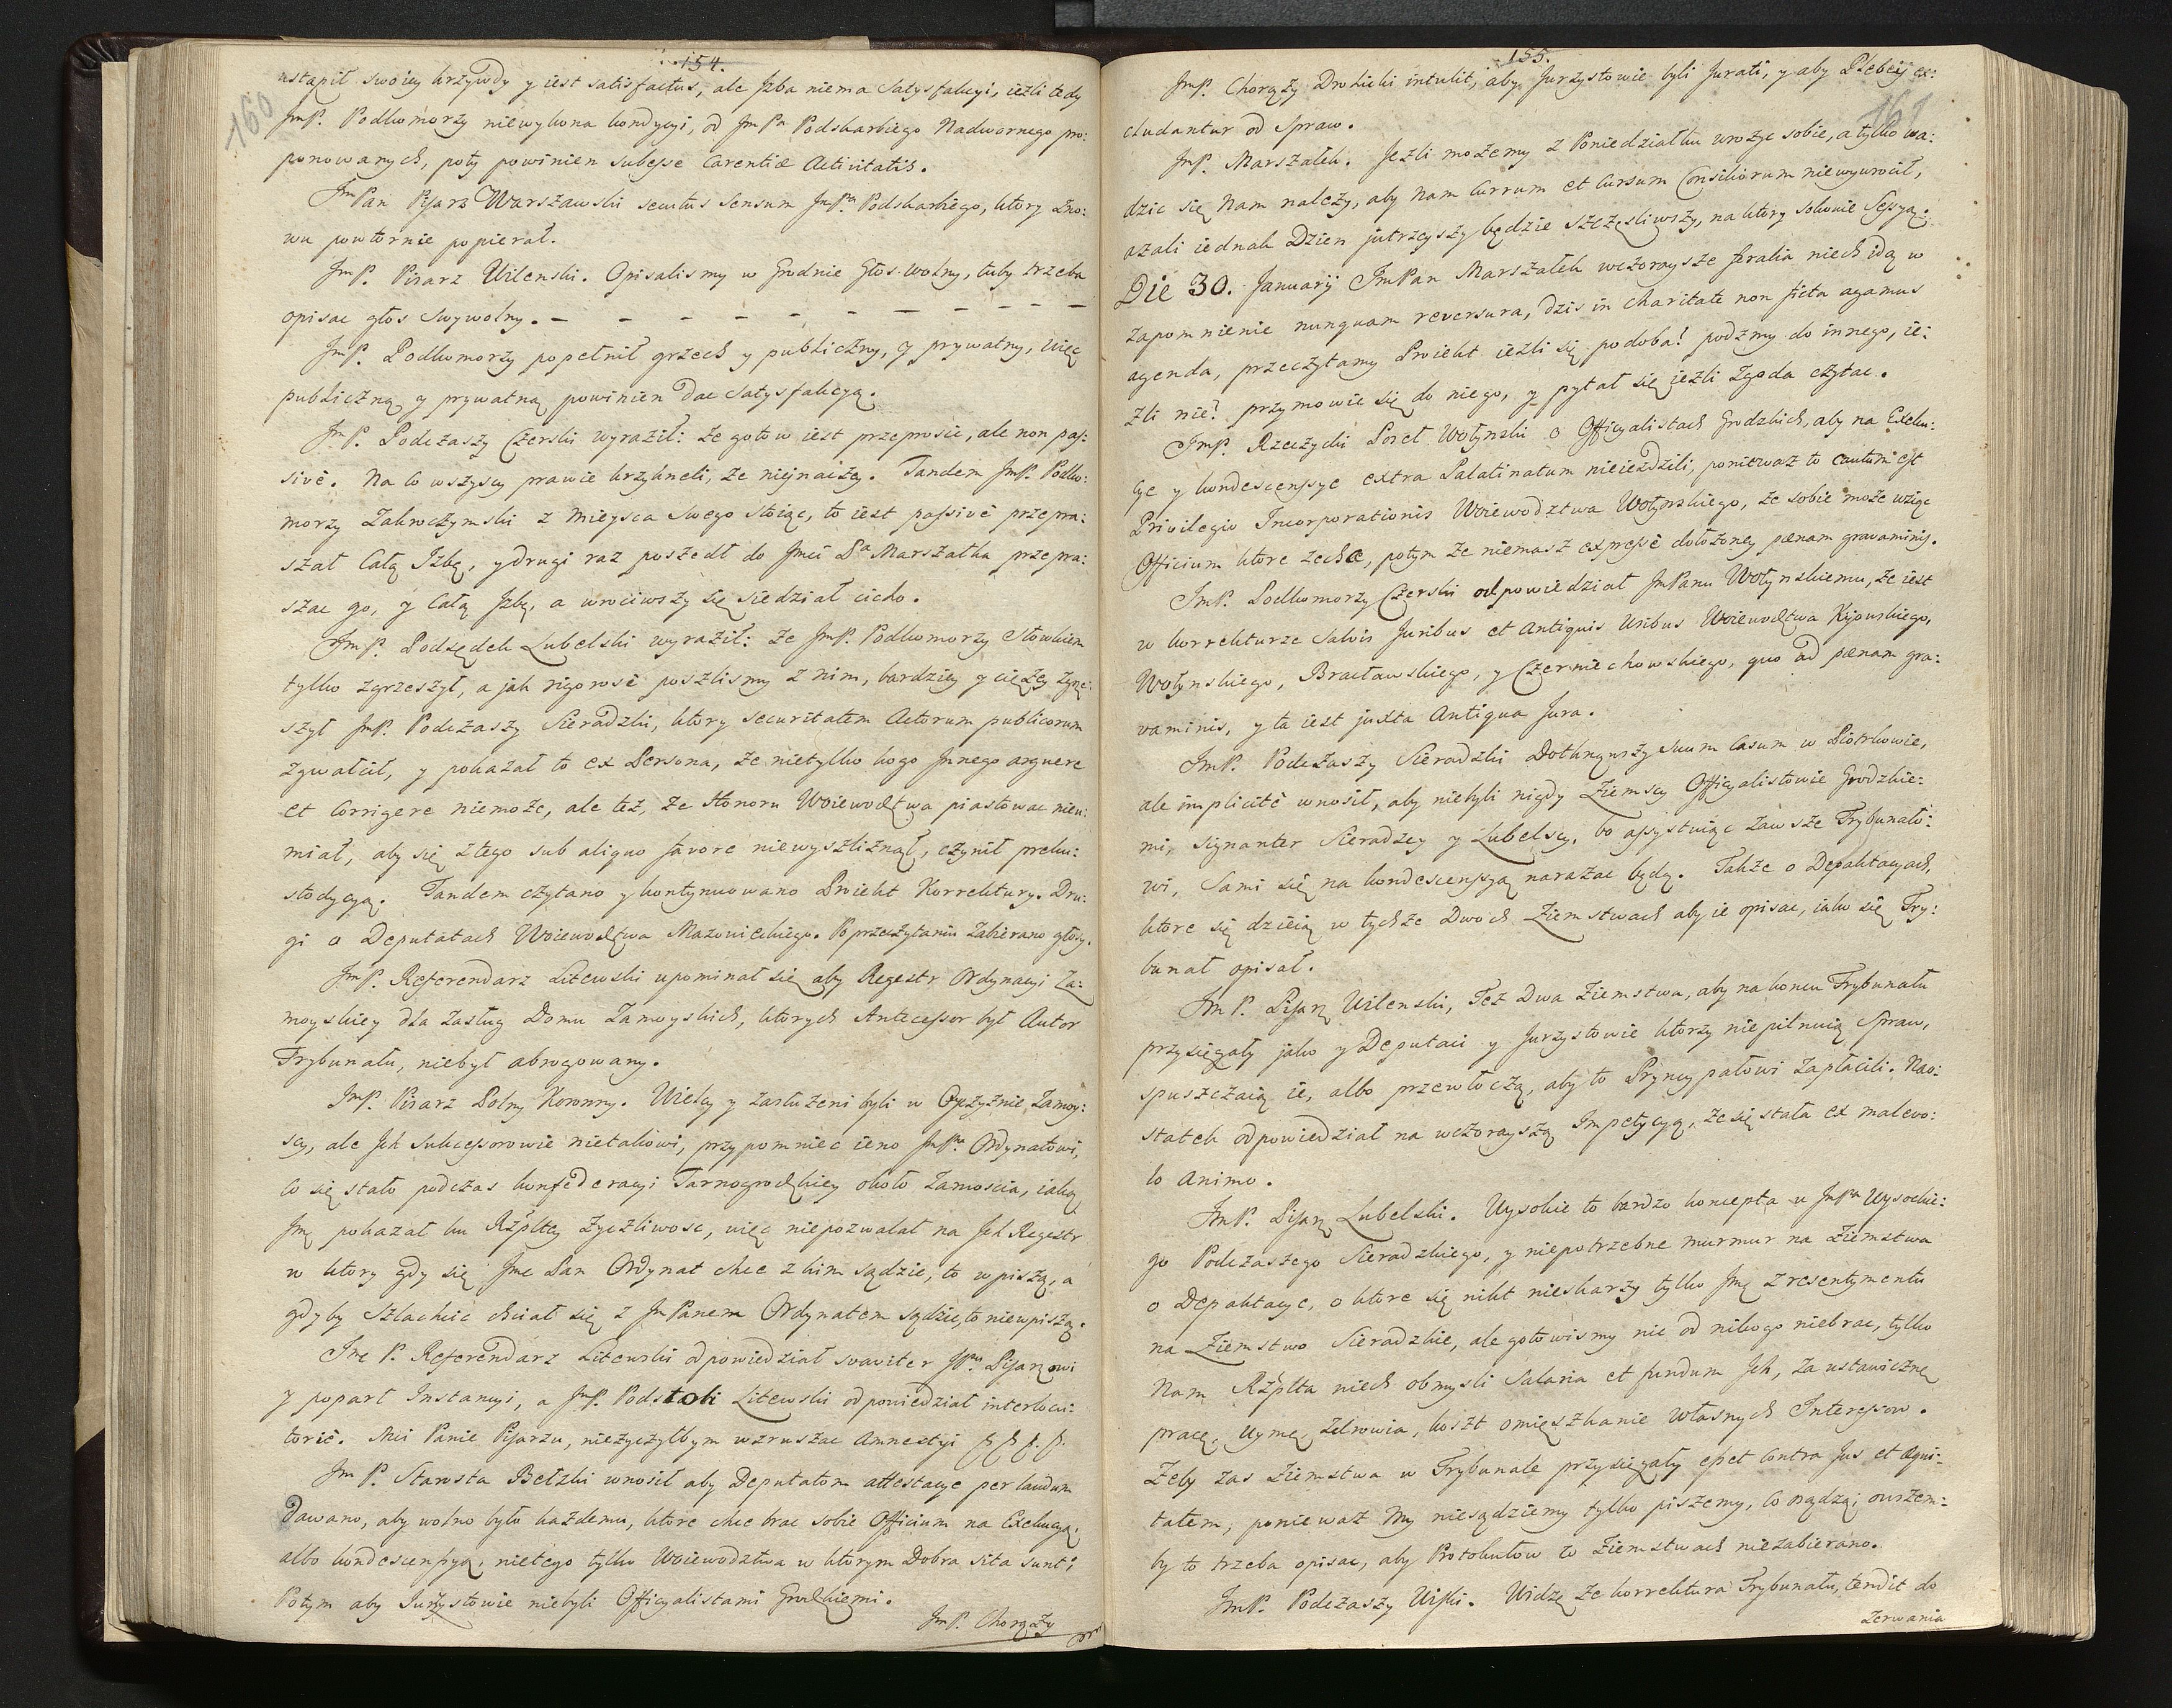 154.
160
ustąpił swoiey krzywdy y iest satisfactus, ale Izba niema Satysfakcyi, ieżli tedy
JmP. Podkomorzy niewykona kondycyi, od JmPa Podskarbiego Nadwornego pro:
ponowanych, poty powinien subesse Carentiæ Activitatis.
JmPan Pisarz Warszawski secutus Sensum JmPa Podskarbiego, ktory zno:
wu powtornie popierał.
JmP. Pisarz Wilenski. Opisalismy w Grodnie Głos wolny, tuby trzeba
opisac głos swywolny. — — — — — — — — — —
JmP. Podkomorzy popełnił grzech y publiczny, y prywatny, więc
publiczną y prywatną powinien dac satysfakcyą.
JmP. Podczaszy Czerski wyraził: że gotow iest przeprosic, ale non pas:
sivè. Na co wszyscy prawie krzykneli, że niynaczey. Tandem JmP. Podko:
morzy Zakroczymski z mieysca swego stoiąc, to iest passivè przepra:
szał Całą Izbę, y drugi raz poszedł do Jmci Pa Marszałka przepra:
szac go, y Całą Izbę, a wrociwszy się siedział cicho.
JmP. Podsędek Lubelski wyraził: że JmP. Podkomorzy słowkiem
tylko zgrzeszył, a jak rigorosè poszlismy z nim, bardziey y ciężey zgrze:
szył JmP. Podczaszy Sieradzki, ktory securitatem Actorum publicorum
zgwałcił, y pokazał to ex Persona, że nietylko kogo Innego arguere
et Corrigere niemoże, ale też, że Honoru Woiewodztwa piastowac nieu:
miał, aby się z tego sub aliquo favore niewyszliznął, czynił preku:
stodycyą. Tandem czytano y kontynuowano Proiekt Korrektury. Dru:
gi o Deputatach Woiewodztwa Mazowieckiego. Po przeczytaniu Zabierano głosy.
JmP. Referendarz Litewski upominał się aby Regestr Ordynacyi Za:
moyskiey dla zasług Domu Zamoyskich, ktorych Antecessor był Autor
Trybunału, niebył abrogowany.
JmP. Pisarz Polny Koronny. Wielcy y zasłużeni byli w Oyczyznie, Zamoy:
scy, ale Ich Sukcessorowie nietakowi, przypomniec ieno JmPa Ordynatowi,
co się stało podczas konfederacyi Tarnogrodzkiey około Zamoscia, iaką
Jmę pokazał ku Rzpltey życzliwosc, więc niepozwalał na Ich Regestr
w ktory gdy się Jmc Pan Ordynat chce z kim sądzic, to wpiszą, a
gdyby Szlachcic chciał się z JmPanem Ordynatem sądzic, to niewpiszą.
Jmc P. Referendarz Litewski odpowiedział suaviter JPu Pisarzowi
y poparł Instancyi, a JmP. Podstoli Litewski odpowiedział interlocu:
toriè. Mci Panie Pisarzu, nieżyczyłbym wzruszac Amnestyi
JmP. Starosta Bełzki wnosił aby Deputatom attestacye per laudum
dawano, aby wolno było każdemu, ktore chce brac sobie Officium na Exekucyą,
albo kondescensyą, nietego tylko Woiewodztwa w ktorym Dobra sita sunt;
Potym aby Jurystowie niebyli Officyalistami Grodzkiemi.
JmP. Chorąży
155.
161
JmP. Chorąży Drohicki intulit, aby Jurzystowie byli Jurati, y aby Plebeij ex:
cludantur od Spraw.
JmP. Marszałek. Jezli możemy z Poniedziałku wrożyc sobie, a tylko wa:
dzic się Nam należy, aby nam Currum et Cursum Consiliorum niewywrocił,
azali iednak Dzien jutrzeyszy będzie szczęsliwszy, na ktory solwuie Sessyą.
Die 30. Januarij JmPan Marszałek wczoraysze feralia niech idą w
zapomnienie nunquam reversura, dzis in charitate non ficta agamus
agenda, przeczytamy Proiekt ieżli się podoba! podzmy do innego, ie:
żli nie? przymowcie się do niego, y pytał się ieżli Zgoda czytac.
JmP. Rzeczycki Poseł Wołynski o Officyalistach Grodzkich, aby na Exeku:
cye y kondescensye extra Palatinatum nieiezdzili, ponieważ to cautum est
Privilegio Incorporationis Woiewodztwa Wołynskiego, że sobie może wziąc
Officium ktore zechce, potym że niemasz expressè dołożoney pænam gravaminis.
JmP. Podkomorzy Czerski odpowiedział JmPanu Wołynskiemu, że iest
w korrekturze Salvis Juribus et Antiquis Usibus Woiewodztwa Kijowskiego,
Wołynskiego, Bracławskiego, y Czerniechowskiego, quo ad pænam gra:
vaminis, y ta iest juxta Antiqua Jura.
JmP. Podczaszy Sieradzki Dotknąwszy suum Casum w Piotrkowie,
ale implicitè wnosił, aby niebyli nigdy Ziemscy Officyalistowie Grodzkie:
mi, signanter Sieradzcy y Lubelscy, bo assystuiąc zawsze Trybunało:
wi, sami się na kondescensyą narażac będą. Także o Depaktacyach,
ktore się dzieią w tychże Dwoch Ziemstwach aby ie opisac, iako się Try:
bunał opisał.
JmP. Pisarz Wilenski, Też Dwa Ziemstwa, aby na koncu Trybunału
przysięgały jako y Deputaci y Jurzystowie ktorzy niepilnuią Spraw,
spuszczaią ie, albo przewłoczą, aby to Pryncypałowi zapłacili. Nao:
statek odpowiedział na wczorayszą Impetycyą, że się stała ex malevo:
lo Animo.
JmP. Pisarz Lubelski. Wysokie to bardzo koncepta u JmPa Wysockie:
go Podczaszego Sieradzkiego, y niepotrzebne murmur na Ziemstwa
o Depaktacye, o ktore się nikt nieskarzy tylko Jmę z resentymentu
na Ziemstwo Sieradzkie, ale gotowismy nic od nikogo niebrac, tylko
Nam Rzplta niech obmysli Salaria et fundum Ich, za ustawiczną
pracę, uymę zdrowia, koszt omięszkanie własnych Interessow.
Żeby zas Ziemstwa w Trybunale przysięgały esset Contra Jus et Æqui-
tatem, ponieważ My niesądziemy tylko piszemy, co osądzą; owszem-
by to trzeba opisac, aby Protokułow w Ziemstwach niezabierano.
JmP. Podczaszy Wiski. Widzę że korrektura Trybunału, tendit do
Zerwania